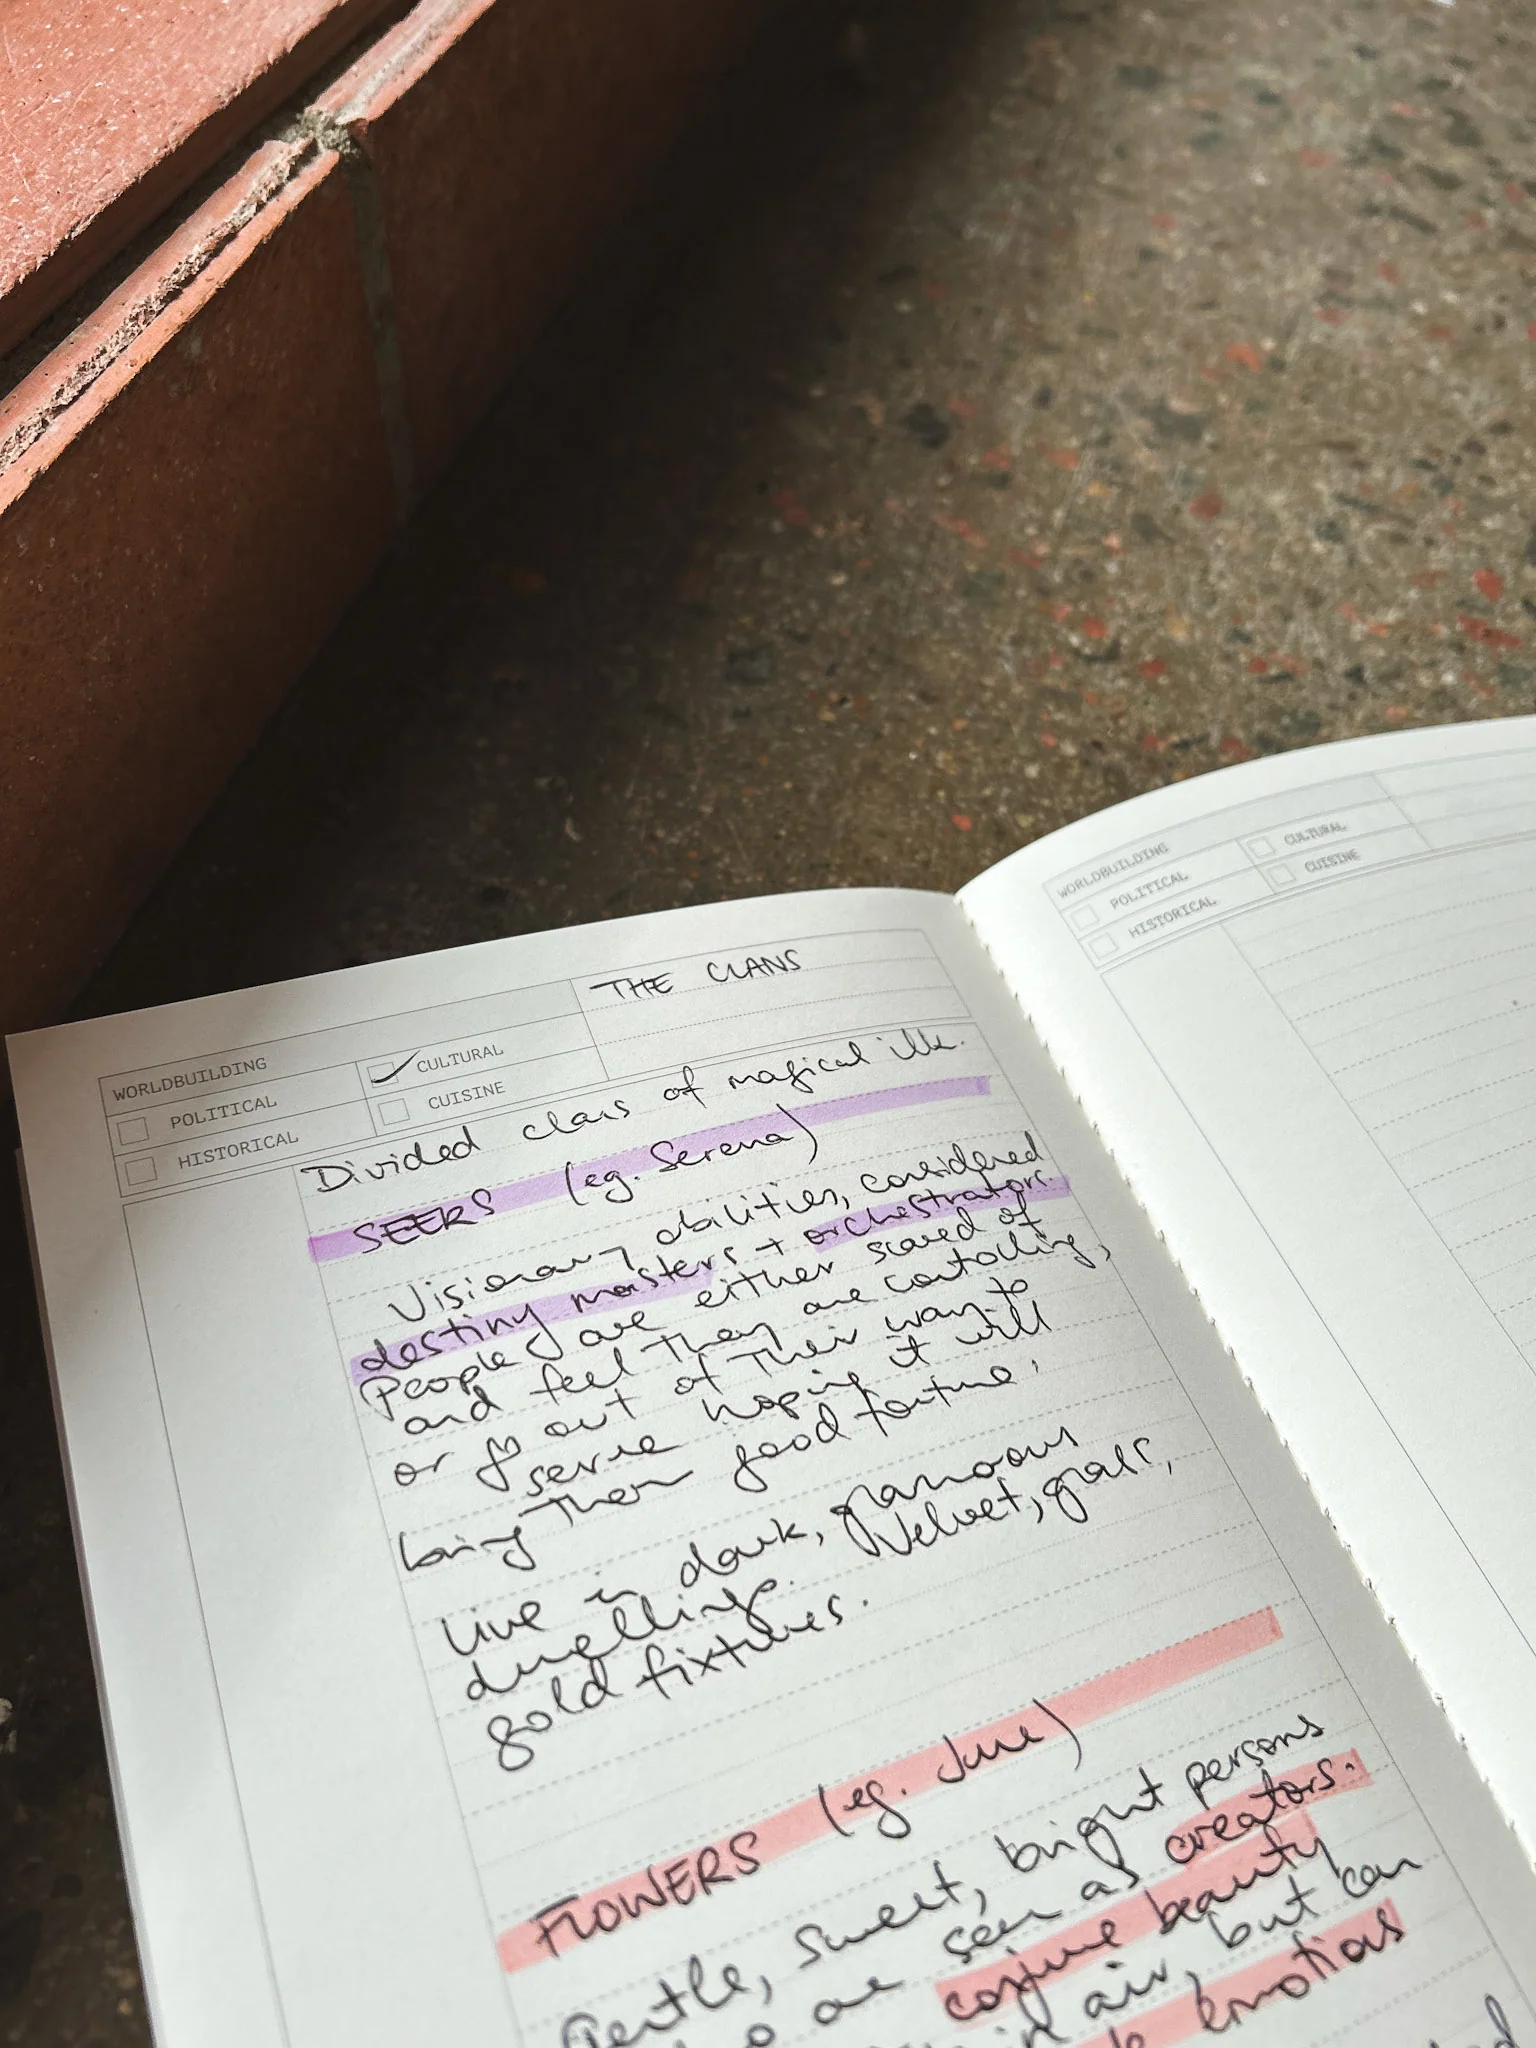 WORLDBUILDING
POLITICAL
HISTORICAL
CULTURAL
CUISINE
THE CLANS
Divided class of magical ilk.
SEERS (eg. Serena)
Visionary abilities, considered
destiny masters + orchestrators.
People are either scared of
and feel they are controlling,
or go out of their way to
serve hoping it will
bring them good fortune.
Live in dark, glamorous
dwellings. Velvet, glass,
gold fixtures.
FLOWERS (eg. June)
Gentle, sweet, bright persons
who are seen as creators.
conjure beauty
air, but can
emotions
WORLDBUILDING
POLITICAL
HISTORICAL
CULTURAL
CUISINE